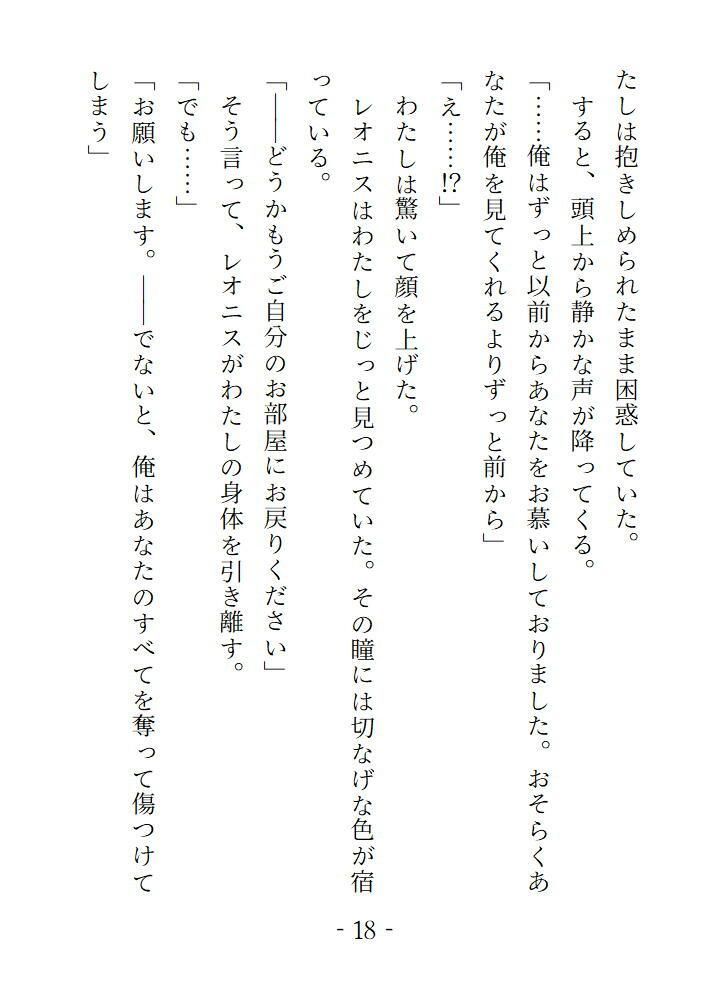 たしは抱きしめられたまま困惑していた。
　すると、頭上から静かな声が降ってくる。
「……俺はずっと以前からあなたをお慕いしておりました。おそらくあ
なたが俺を見てくれるよりずっと前から」
「え……⁉」
　わたしは驚いて顔を上げた。
　レオニスはわたしをじっと見つめていた。その瞳には切なげな色が宿
っている。
「――どうかもうご自分のお部屋にお戻りください」
　そう言って、レオニスがわたしの身体を引き離す。
「でも……」
「お願いします。――でないと、俺はあなたのすべてを奪って傷つけて
しまう」
- 18 -